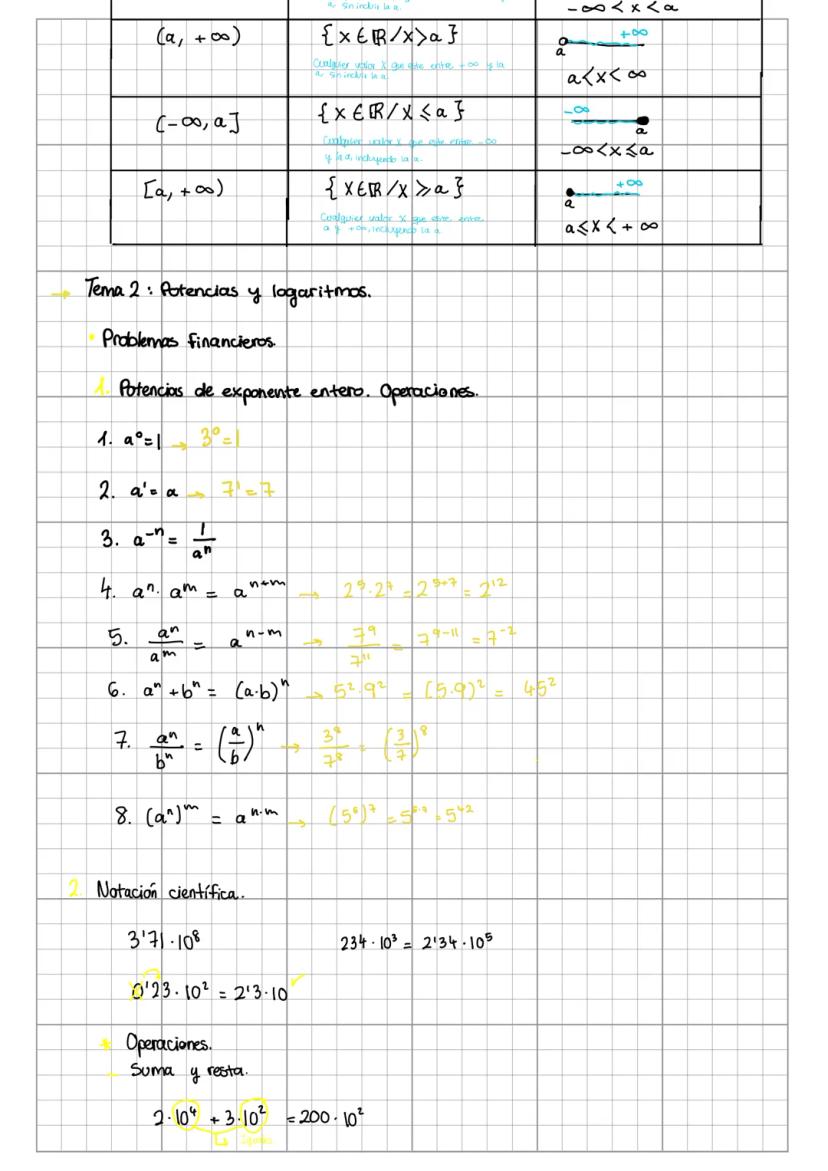 a sin incluir la a.
-∞ < x < a
(a, +∞) {x∈ℝ/x>a} +∞
a
Cualquier valor x que este entre +∞ y la
a sin incluir la a.
a<x<∞
(-∞, a] {x∈ℝ/x≤a} -∞
a
Cualquier valor x que este entre -∞
y la a, incluyendo la a.
-∞<x≤a
[a, +∞) {x∈ℝ/x≥a} +∞
a
Cualquier valor x que este entre
a y +∞, incluyendo la a
a≤x<+∞
→ Tema 2: Potencias y logaritmos.
• Problemas financieros.
1. Potencias de exponente entero. Operaciones.
1. a⁰=1 → 3⁰=1
2. a¹= a → 7¹=7
3. a⁻ⁿ = 1/aⁿ
4. aⁿ· aᵐ = aⁿ⁺ᵐ → 2⁵·2⁷ = 2⁵⁺⁷ = 2¹²
5. aⁿ/aᵐ = aⁿ⁻ᵐ → 7⁹/7¹¹ = 7⁹⁻¹¹ = 7⁻²
6. aⁿ+bⁿ = (a·b)ⁿ → 5²·9² = (5·9)² = 45²
7. aⁿ/bⁿ = (a/b)ⁿ → 3⁸/7⁸ = (3/7)⁸
8. (aⁿ)ᵐ = aⁿ·ᵐ → (5⁶)⁷ = 5⁶·⁷ = 5⁴²
2. Notación científica.
3'71·10⁸ 234·10³ = 2'34·10⁵
0'23·10² = 2'3·10 ✓
* Operaciones.
- Suma y resta.
2·10⁴ + 3·10² = 200·10²